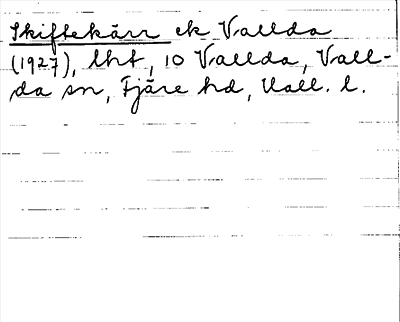 Skiftekärr ek Vallda
(1927), lht, 10 Vallda, Vall-
da sn, Fjäre hd, Hall. l.